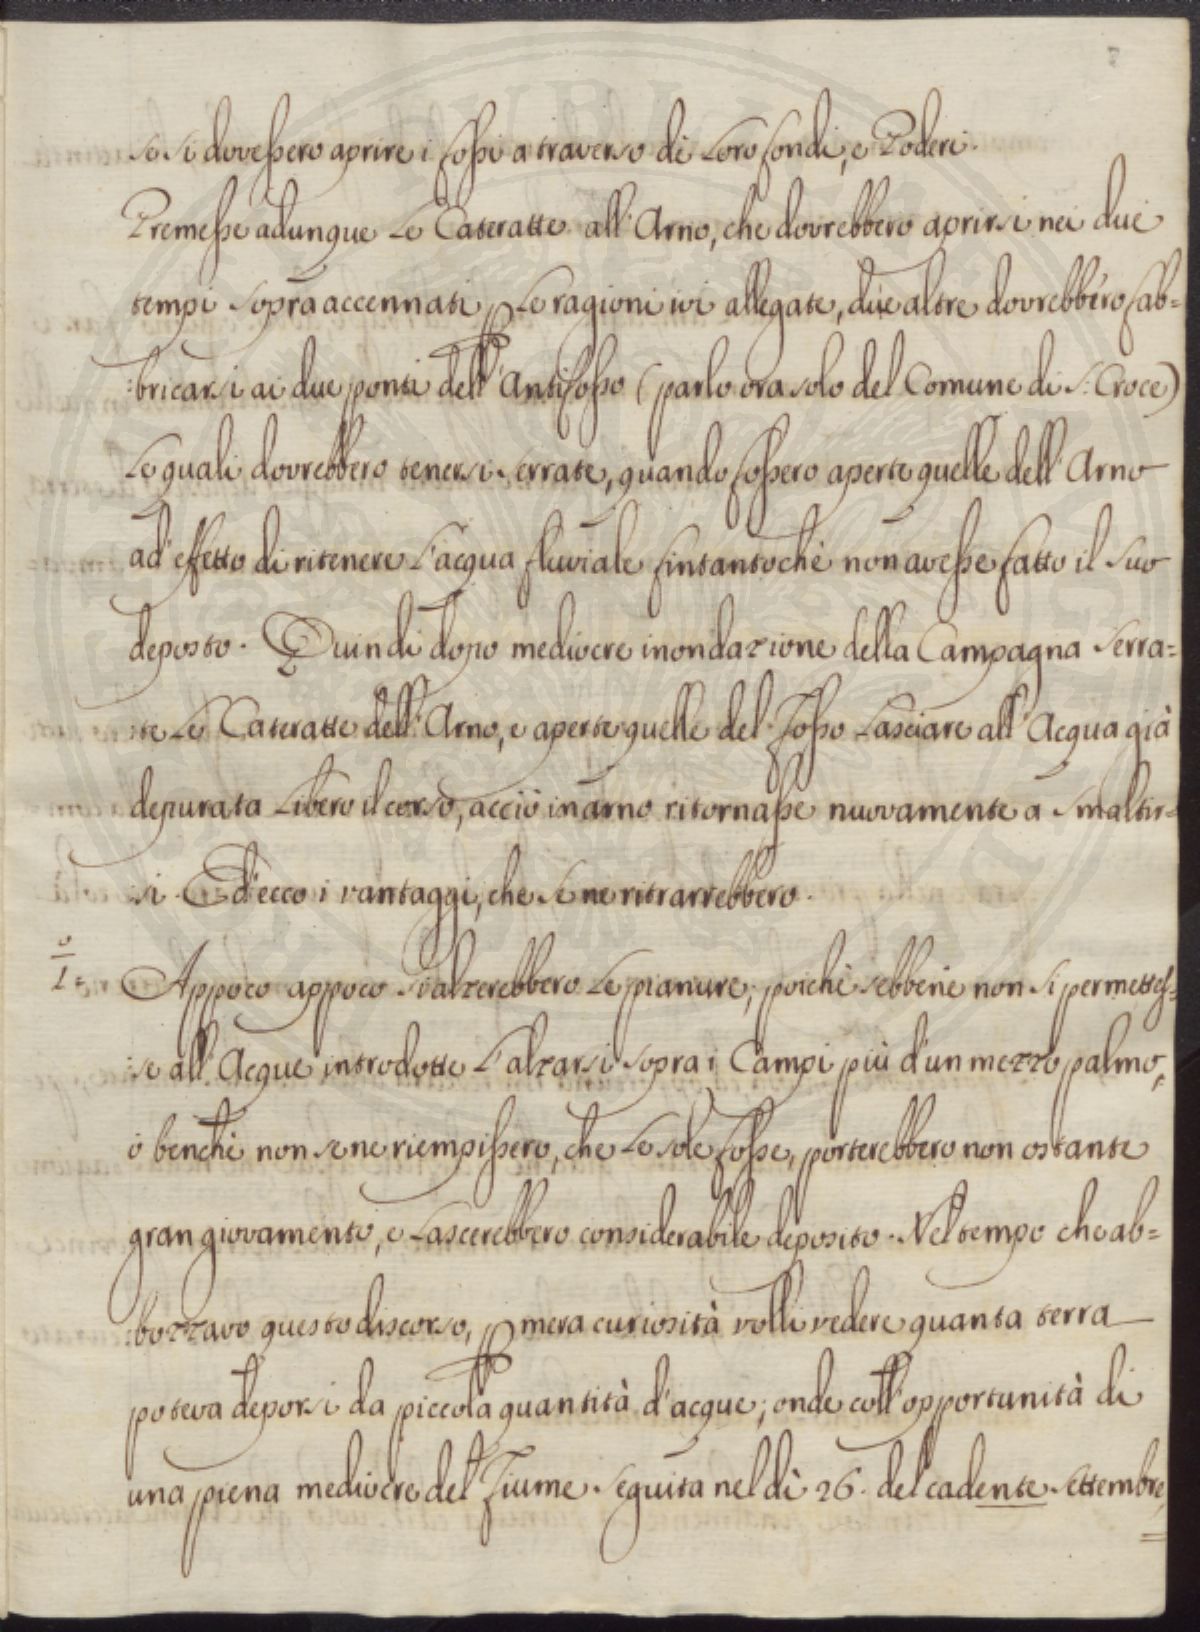 se si dovessero aprire i fossi a traverso di Loro fondi, e Poderi.
Premesse adunque Le Cateratte all'Arno, che dovrebbero aprirsi nei due
tempi sopra accennati p Le ragioni ivi allegate, due altre dovrebbero fab=
:bricarsi ai due ponti dell'Antifosso (parlo ora solo del Comune di S: Croce)
Le quali dovrebbero tenersi serrate, quando fossero aperte quelle dell'Arno
ad'effetto di ritenere L'acqua fluviale fintantochè non avesse fatto il suo
deposto. Quindi dopo mediocre inondazione della Campagna serra=
:te Le Cateratte dell'Arno, e aperte quelle del Fosso Lasciare all'Acqua già
depurata Libero il corso, acciò in arno ritornasse nuovamente a smaltir=
:si. Ed'ecco i vantaggi, che se ne ritrarrebbero.
1:o Appoco appoco s'alzerebbero Le pianure; poichè sebbene non si permettes=
:se all'Acque introdotte L'alzarsi sopra i Campi più d'un mezzo palmo,
ò benchè non se ne riempissero, che Le sole fosse, porterebbero non ostante
gran giovamento, e Lascerebbero considerabile deposito. Nel tempo che ab=
:bozzavo questo discorso, p mera curiosità volli vedere quanta terra
poteva deporsi da piccola quantità d'acque; onde coll'opportunità di
una piena mediocre del Fiume seguita nel dì 26. del cadente Settembre,